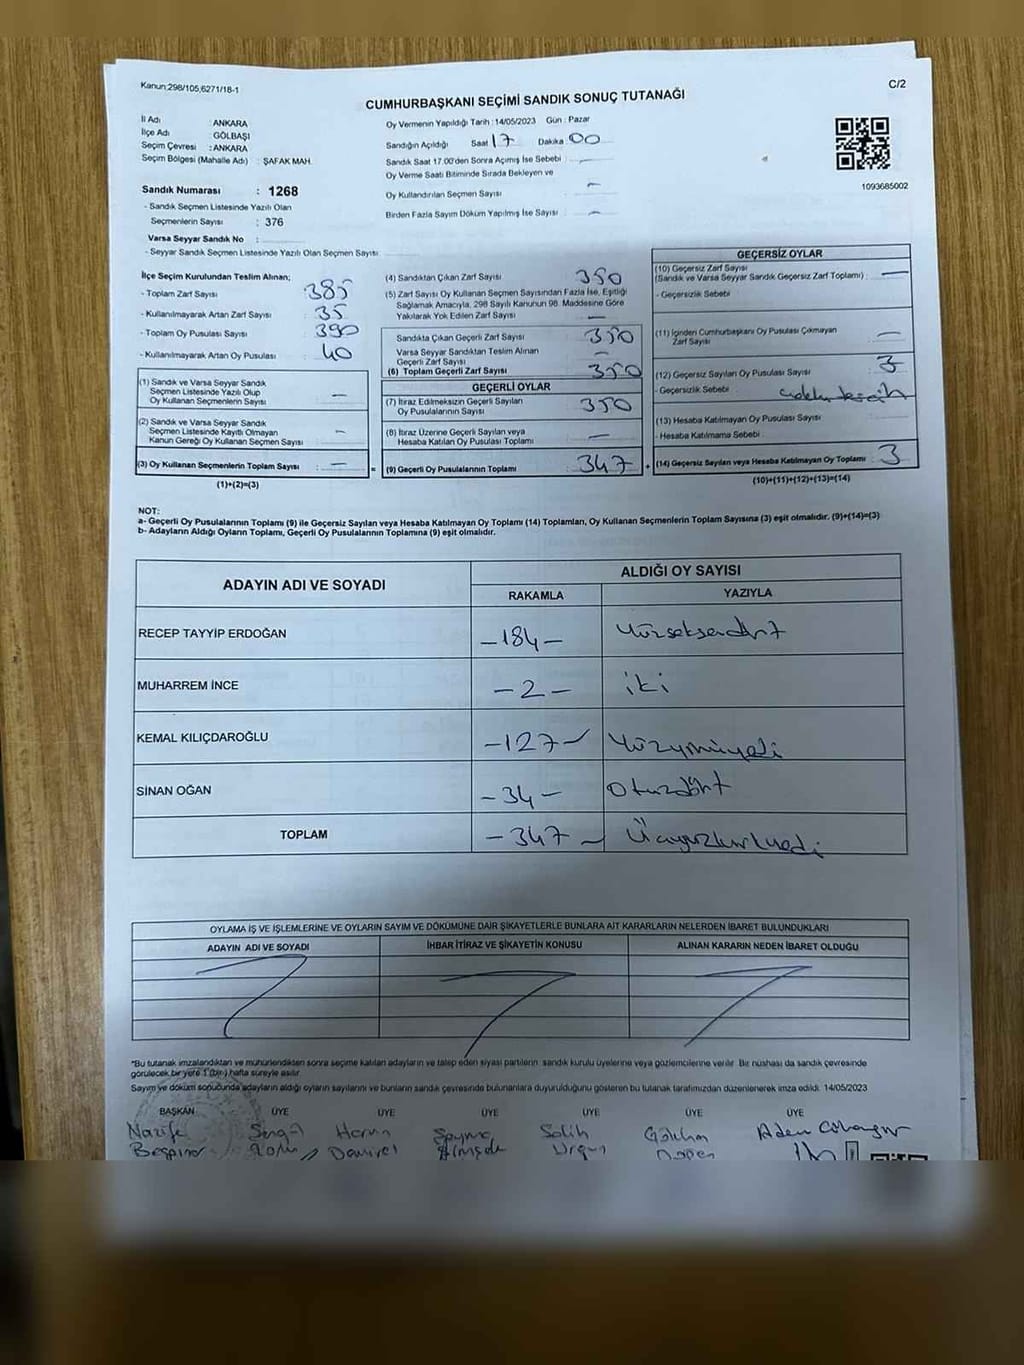 Kanun;298/105,6271/18-1
C/2
CUMHURBAŞKANI SEÇİMİ SANDIK SONUÇ TUTANAĞI
İl Adı : ANKARA
İlçe Adı GÖLBAŞI
Seçim Çevresi : ANKARA
Seçim Bölgesi (Mahalle Adı) : ŞAFAK MAH.
Sandık Numarası : 1268
- Sandık Seçmen Listesinde Yazılı Olan
Seçmenlerin Sayısı : 376
Varsa Seyyar Sandık No :
- Seyyar Sandık Seçmen Listesinde Yazılı Olan Seçmen Sayısı :
Oy Vermenin Yapıldığı Tarih : 14/05/2023 Gün : Pazar
Sandığın Açıldığı Saat 17 Dakika 00
Sandık Saat 17.00'den Sonra Açımış İse Sebebi : -
Oy Verme Saati Bitiminde Sırada Bekleyen ve
Oy Kullandırılan Seçmen Sayısı : -
Birden Fazla Sayım Döküm Yapılmış İse Sayısı : -
1093685002
İlçe Seçim Kurulundan Teslim Alınan;
- Toplam Zarf Sayısı : 385
- Kullanılmayarak Artan Zarf Sayısı : 35
- Toplam Oy Pusulası Sayısı : 390
- Kullanılmayarak Artan Oy Pusulası : 40
(1) Sandık ve Varsa Seyyar Sandık
Seçmen Listesinde Yazılı Olup
Oy Kullanan Seçmenlerin Sayısı : -
(2) Sandık ve Varsa Seyyar Sandık
Seçmen Listesinde Kayıtlı Olmayan
Kanun Gereği Oy Kullanan Seçmen Sayısı : -
(3) Oy Kullanan Seçmenlerin Toplam Sayısı : - =
(1)+(2)=(3)
(4) Sandıktan Çıkan Zarf Sayısı : 350
(5) Zarf Sayısı Oy Kullanan Seçmen Sayısından Fazla İse, Eşitliği
Sağlamak Amacıyla, 298 Sayılı Kanunun 98. Maddesine Göre
Yakılarak Yok Edilen Zarf Sayısı : -
Sandıkta Çıkan Geçerli Zarf Sayısı : 350
Varsa Seyyar Sandıktan Teslim Alınan
Geçerli Zarf Sayısı : -
(6) Toplam Geçerli Zarf Sayısı : 350
GEÇERLİ OYLAR
(7) İtiraz Edilmeksizin Geçerli Sayılan
Oy Pusulalarının Sayısı : 350
(8) İtiraz Üzerine Geçerli Sayılan veya
Hesaba Katılan Oy Pusulası Toplamı : -
(9) Geçerli Oy Pusulalarının Toplamı : 347 +
GEÇERSİZ OYLAR
(10) Geçersiz Zarf Sayısı
(Sandık ve Varsa Seyyar Sandık Geçersiz Zarf Toplamı) : -
- Geçersizlik Sebebi :
(11) İçinden Cumhurbaşkanı Oy Pusulası Çıkmayan
Zarf Sayısı : -
(12) Geçersiz Sayılan Oy Pusulası Sayısı : 3
- Geçersizlik Sebebi :
(13) Hesaba Katılmayan Oy Pusulası Sayısı :
- Hesaba Katılmama Sebebi :
(14) Geçersiz Sayılan veya Hesaba Katılmayan Oy Toplamı : 3
(10)+(11)+(12)+(13)=(14)
NOT:
a- Geçerli Oy Pusulalarının Toplamı (9) ile Geçersiz Sayılan veya Hesaba Katılmayan Oy Toplamı (14) Toplamları, Oy Kullanan Seçmenlerin Toplam Sayısına (3) eşit olmalıdır. (9)+(14)=(3)
b- Adayların Aldığı Oyların Toplamı, Geçerli Oy Pusulalarının Toplamına (9) eşit olmalıdır.
ADAYIN ADI VE SOYADI ALDIĞI OY SAYISI
RAKAMLA YAZIYLA
RECEP TAYYİP ERDOĞAN -184- Yüzseksendört
MUHARREM İNCE -2- iki
KEMAL KILIÇDAROĞLU -127- Yüzyirmiyedi
SİNAN OĞAN -34- Otuzdört
TOPLAM -347- Üçyüzkırkyedi
OYLAMA İŞ VE İŞLEMLERİNE VE OYLARIN SAYIM VE DÖKÜMÜNE DAİR ŞİKAYETLERLE BUNLARA AİT KARARLARIN NELERDEN İBARET BULUNDUKLARI
ADAYIN ADI VE SOYADI İHBAR İTİRAZ VE ŞİKAYETİN KONUSU ALINAN KARARIN NEDEN İBARET OLDUĞU
*Bu tutanak imzalandıktan ve mühürlendikten sonra seçime katılan adayların ve talep eden siyasi partilerin sandık kurulu üyelerine veya gözlemcilerine verilir. Bir nüshası da sandık çevresinde
görülecek bir yere 1 (bir) hafta süreyle asılır.
Sayım ve döküm sonucunda adayların aldığı oyların sayılarını ve bunların sandık çevresinde bulunanlara duyurulduğunu gösteren bu tutanak tarafımızdan düzenlenerek imza edildi. 14/05/2023
BAŞKAN ÜYE ÜYE ÜYE ÜYE ÜYE ÜYE
Nazife Harun Şeyma Salih Gökhan Adem
Demirel